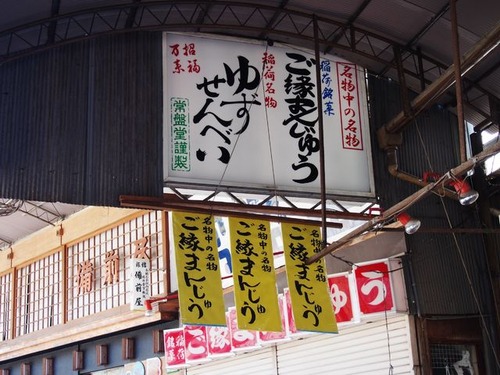 名物中の名物
稲荷銘菓
ご縁まんじゅう
稲荷名物
ゆず
せんべい
招福
万来
常盤堂謹製
名物中の名物
ご縁まんじゅう
名物中の名物
ご縁まんじゅう
名物中の名物
ご縁まんじゅう
備前屋
備前屋
稲荷
銘菓
ご縁
ゅう